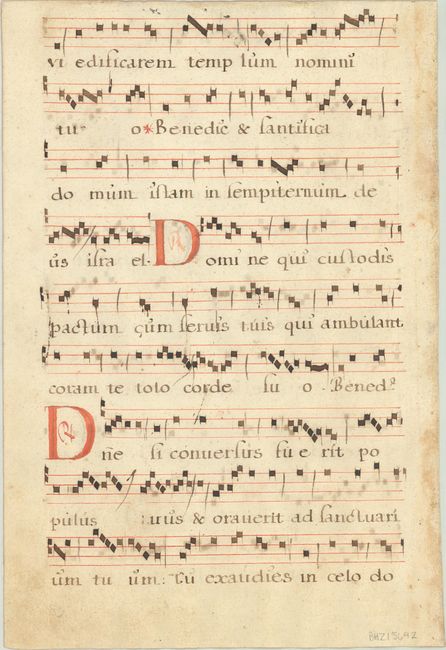 vi edificarem templum nomini
tuo * Benedic & santifica
domum istam in sempiternum de
us israel. Domine qui custodis
pactum cum servis tuis qui ambulant
coram te toto corde suo. Bened.
Dne si conversus fuerit po
pulus tuus & oraverit ad sanctuari
um tuum: Tu exaudies in celo do
BHZ15642